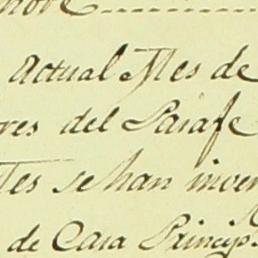 Actual Mes de
res del Paiafe
tes se han inven
de Casa Princip.